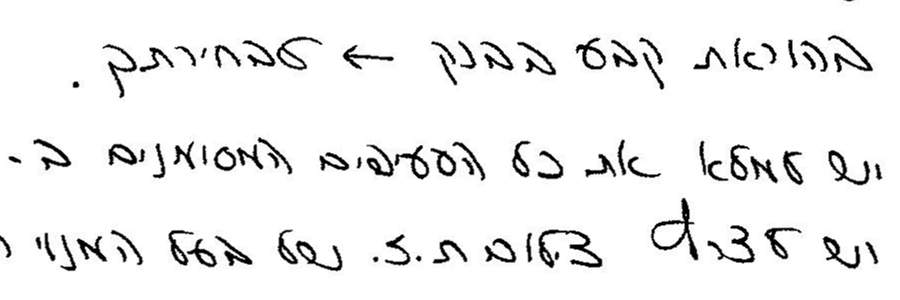 בהוראת קבע בבנק ← לבחירתך.
יש למלא את כל הסעיפים המסומנים ב-
יש לצרף צילום ת.ז. של בעל המנוי